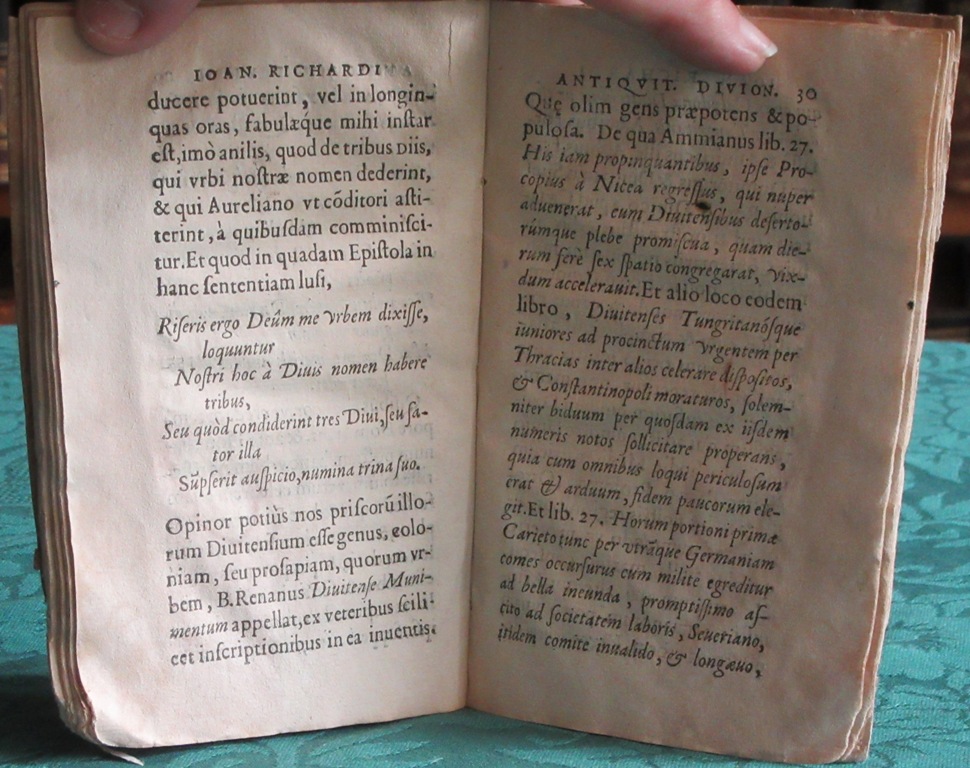 IOAN. RICHARDI
ducere potuerint, vel in longin-
quas oras, fabulæq́ue mihi inſtar
eſt, imò anilis, quod de tribus Diis,
qui vrbi noſtræ nomen dederint,
& qui Aureliano vt cõditori aſti-
terint, à quibuſdam comminiſci-
tur. Et quod in quadam Epiſtola in
hanc ſententiam luſi,
Riſeris ergo Deûm me vrbem dixiſſe,
loquuntur
Noſtri hoc à Diuis nomen habere
tribus,
Seu quòd condiderint tres Diui, ſeu ſa-
tor illa
Sũpſerit auſpicio, numina trina ſuo.
Opinor potiùs nos priſcorũ illo-
rum Diuitenſium eſſe genus, colo-
niam, ſeu proſapiam, quorum vr-
bem, B. Renanus Diuitenſe Muni-
mentum appellat, ex veteribus ſcili-
cet inſcriptionibus in ea inuentis.
ANTIQVIT. DIVION. 30
Quę olim gens præpotens & po-
puloſa. De qua Ammianus lib. 27.
His iam propinquantibus, ipſe Pro-
copius à Nicea regreſſus, qui nuper
aduenerat, cum Diuitenſibus deſerto-
rúmque plebe promiſcua, quam die-
rum ferè ſex ſpatio congregarat, vix-
dum accelerauit. Et alio loco eodem
libro, Diuitenſes Tungritanóſque
iuniores ad procinctum vrgentem per
Thracias inter alios celerare diſpoſitos,
& Conſtantinopoli moraturos, ſolem-
niter biduum per quoſdam ex iiſdem
numeris notos ſollicitare properans,
quia cum omnibus loqui periculoſum
erat & arduum, fidem paucorum ele-
git. Et lib. 27. Horum portioni primæ
Carieto tunc per vtrãque Germaniam
comes occurſurus cum milite egreditur
ad bella ineunda, promptiſſimo aſ-
cito ad ſocietatem laboris, Seueriano,
itidem comite inualido, & longæuo,